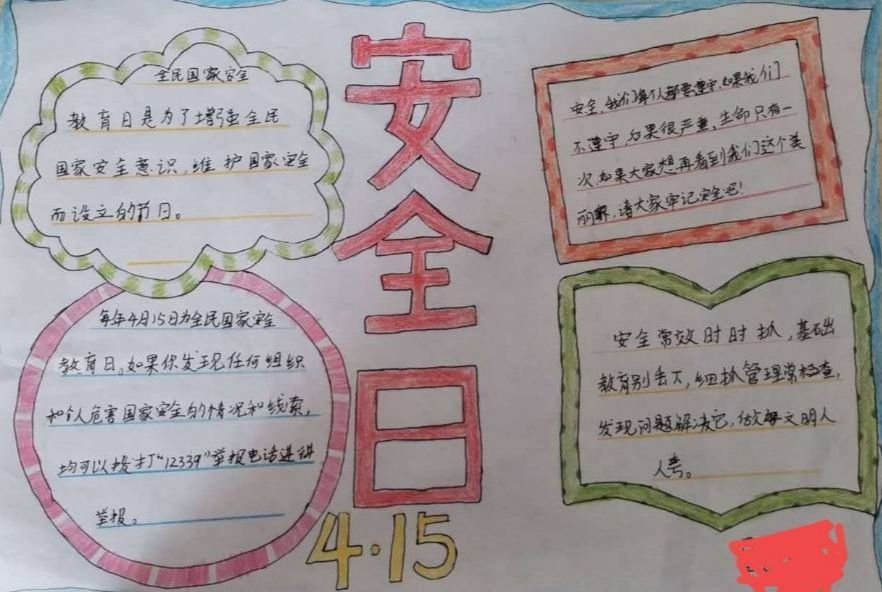 全民国家安全
教育日是为了增强全民
国家安全意识，维护国家安全
而设立的节日。
每年4月15日为全民国家安全
教育日。如果你发现任何组织
和个人危害国家安全的情况和线索，
均可以拨打“12339”举报电话进行
举报。
安
全
日
4·15
安全，我们每个人都要遵守，如果我们
不遵守，后果很严重，生命只有一
次，如果大家想再看到我们这个美
丽，请大家牢记安全吧！
安全常效时时抓，基础
教育别丢下，细抓管理常检查，
发现问题解决它，做文明人
人夸。